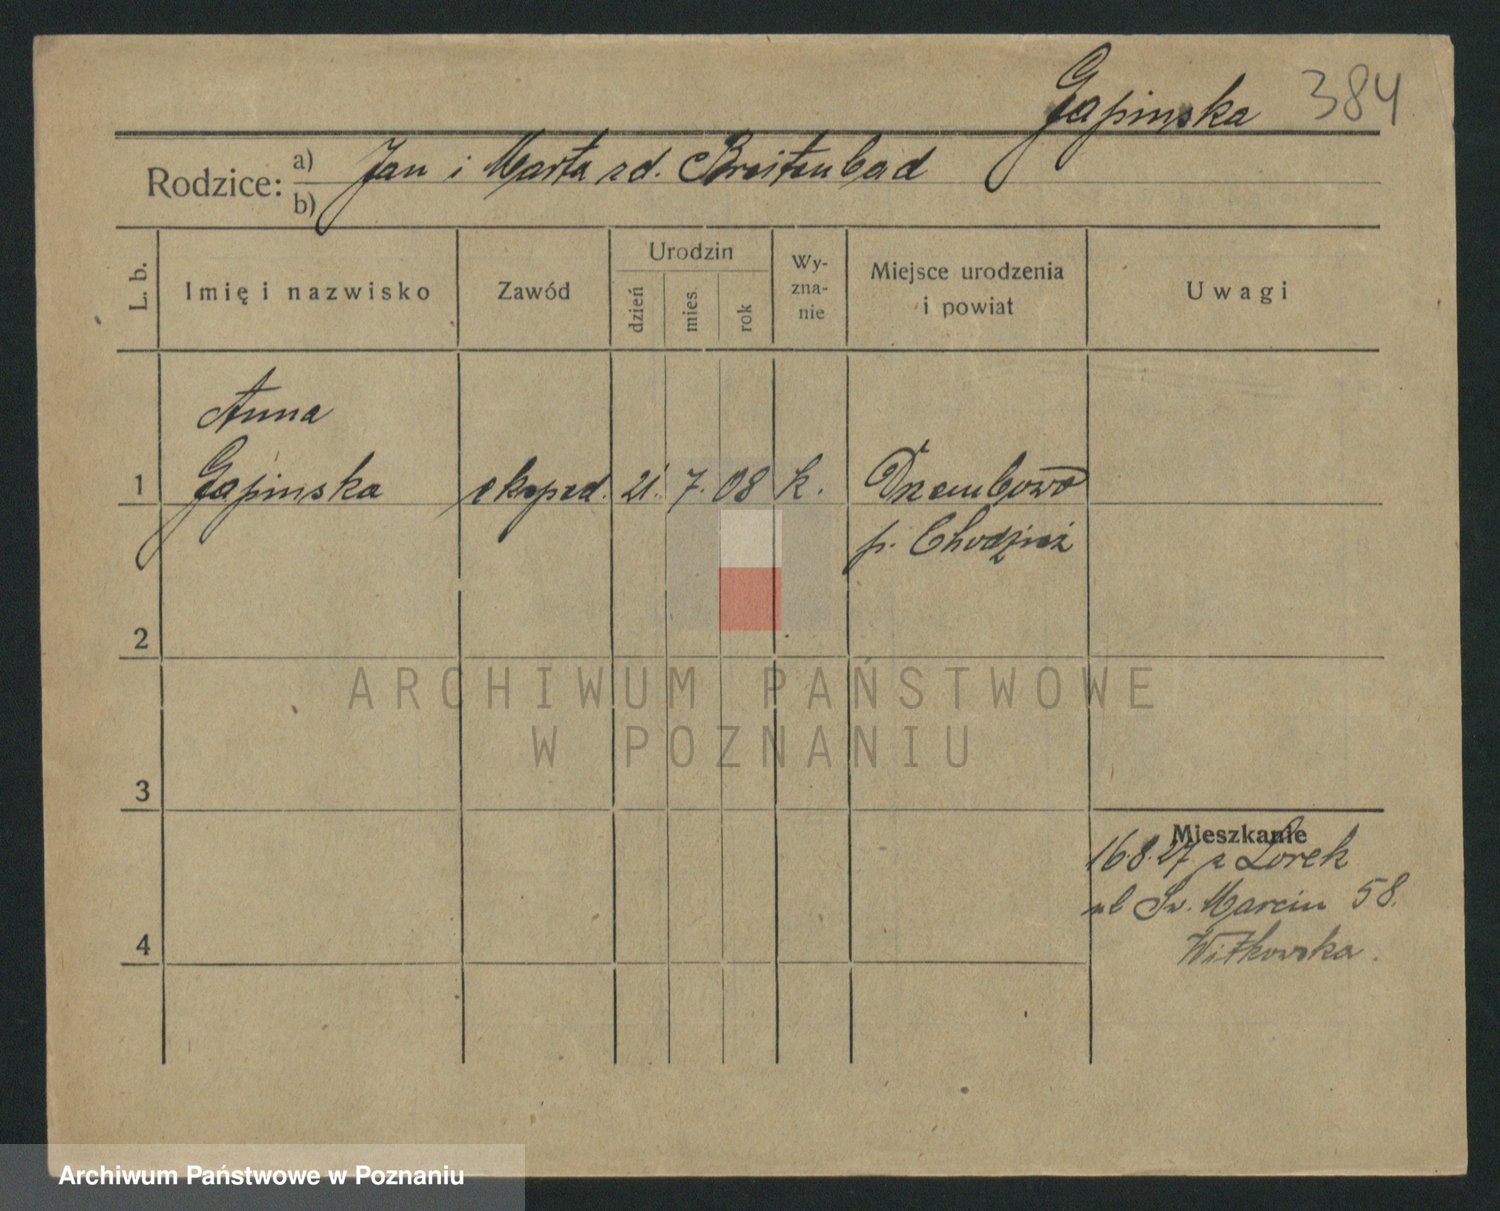 Gapinska 384
Rodzice: a) Jan i Marta zd. Breitenbad
b)
L. b. Imię i nazwisko Zawód Urodzin dzień mies. rok Wy-zna-nie Miejsce urodzenia i powiat Uwagi
Anna
1 Gapinska ekspd. 21. 7. 08 k. Dzembowo
p. Chodzież
2
ARCHIWUM PAŃSTWOWE
W POZNANIU
3
Mieszkanie
16.8.27 z Lorek
ul Św. Marcin 58.
4 Witkowska.
Archiwum Państwowe w Poznaniu